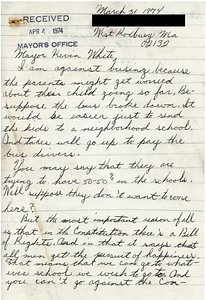 March 31, 1974
RECEIVED
APR 4 1974
MAYOR'S OFFICE
West Roxbury Ma
02132
Mayor Kevin White,
I am against busing because
the parents might get worried
about their child going so far. Be-
suppose the bus broke down. It
would be easier just to send
the kids to a neighborhood school.
And taxes will go up to pay the
bus drivers.
You may say that they are
trying to have 50-50% in the schools.
Well suppose they don't want to come
here?
But the most important reason of all
is that in the Constitution there's a Bill
of Rights. And in that it says that
all men get the pursuit of happiness.
That means that we can go to what-
ever school we wish to go to. And
you can't go against the Con-